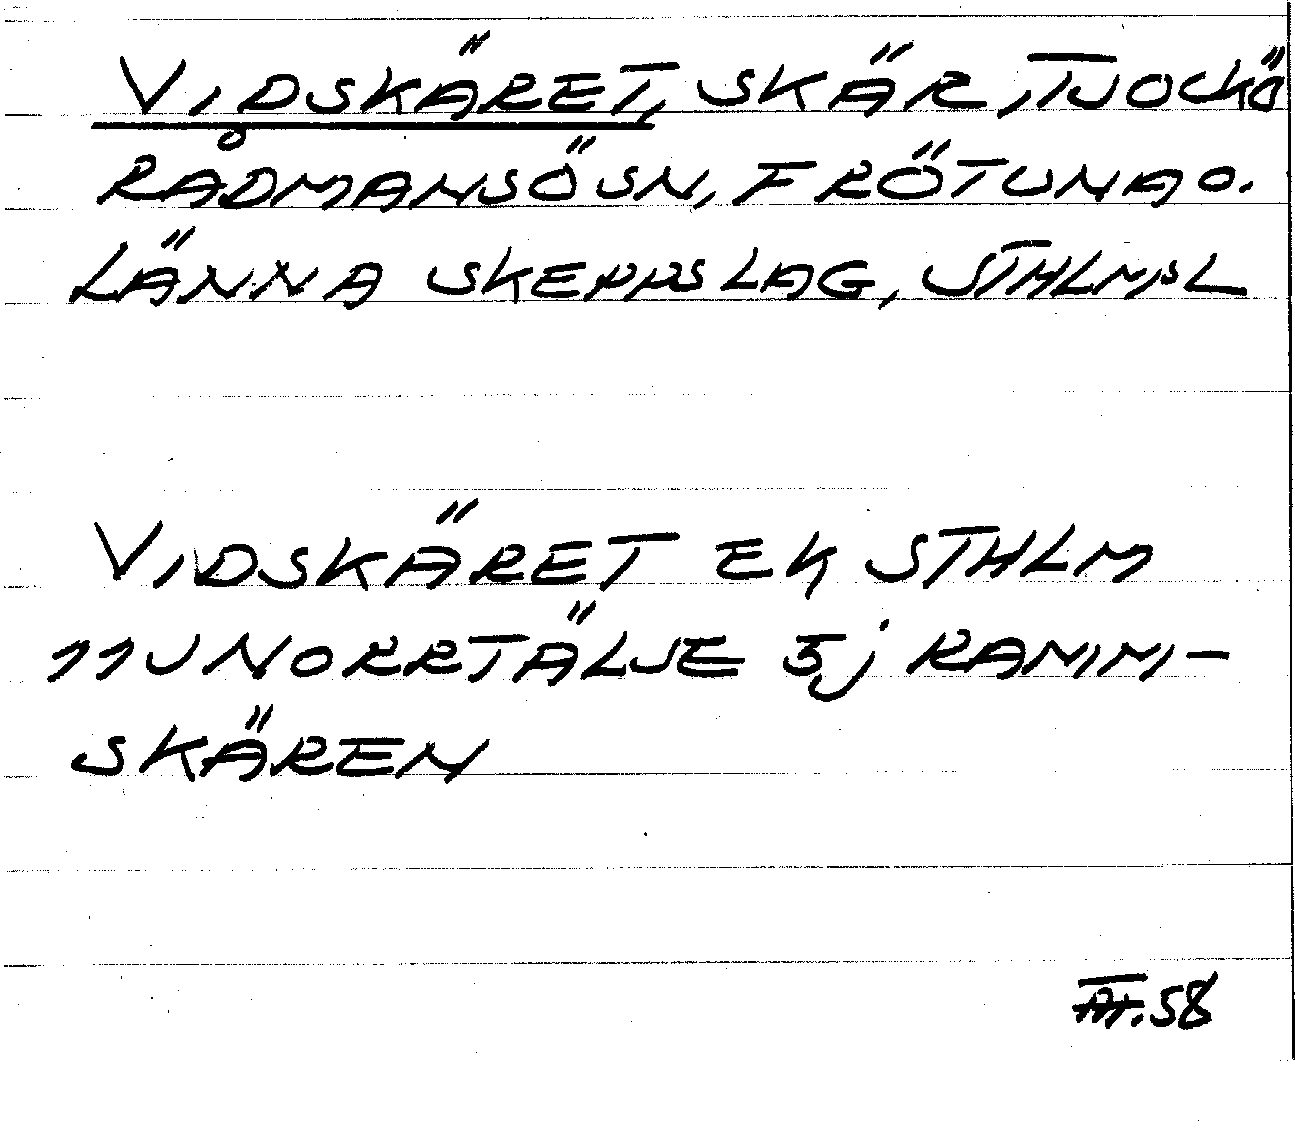 VIDSKÄRET, SKÄR, TJOCKÖ
RÅDMANSÖ SN, FRÖTUNA O.
LÄNNA SKEPPSLAG, STHLMS L
VIDSKÄRET EK STHLM
11J NORRTÄLJE 5j RAMM-
SKÄREN
58